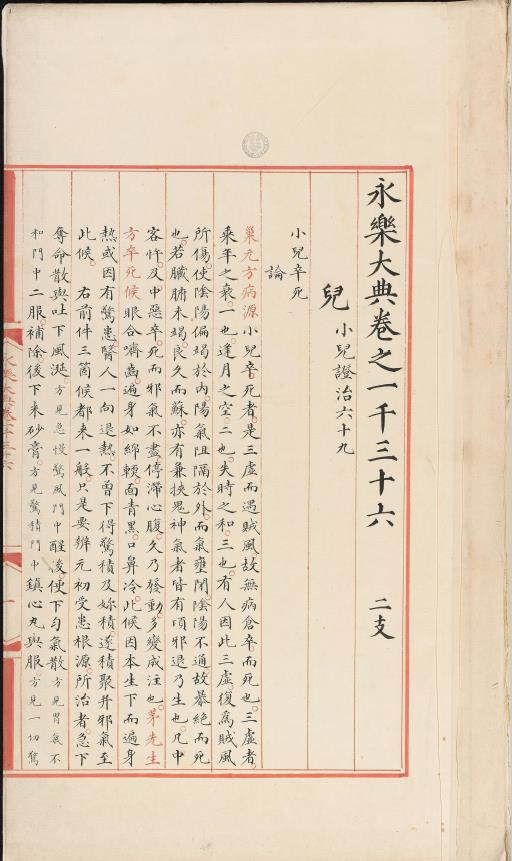 永樂大典卷之一千三十六 二支
兒 小兒證治六十九
小兒卒死
論
巢元方病源小兒卒死者是三虛而遇賊風故無病倉卒而死也三虛者
乘年之衰一也逢月之空二也失時之和三也有人因此三虛復為賊風
所傷使陰陽偏竭於內陽氣阻隔於外而氣壅閉陰陽不通故暴絕而死
也若臟腑未竭良久而蘇亦有兼挾鬼神氣者皆有頃邪退乃生也凡中
客忤及中惡卒死而邪氣不盡停滯心腹久乃發動多變成注也茅先生
方卒死候眼合嚌齒遍身如綿軟面青黑口鼻冷此候因本生下而遍身
熱或因有驚患醫人一向退熱不曾下得驚積及妳積遂積聚并邪氣至
此候 右前件三箇候都来一般只是要辨元初受患根源所治者急下
奪命散與吐下風涎方見急慢驚風門中醒後便下勻氣散方見胃氣不
和門中二服補除後下朱砂膏方見驚積門中鎮心丸與服方見一切驚